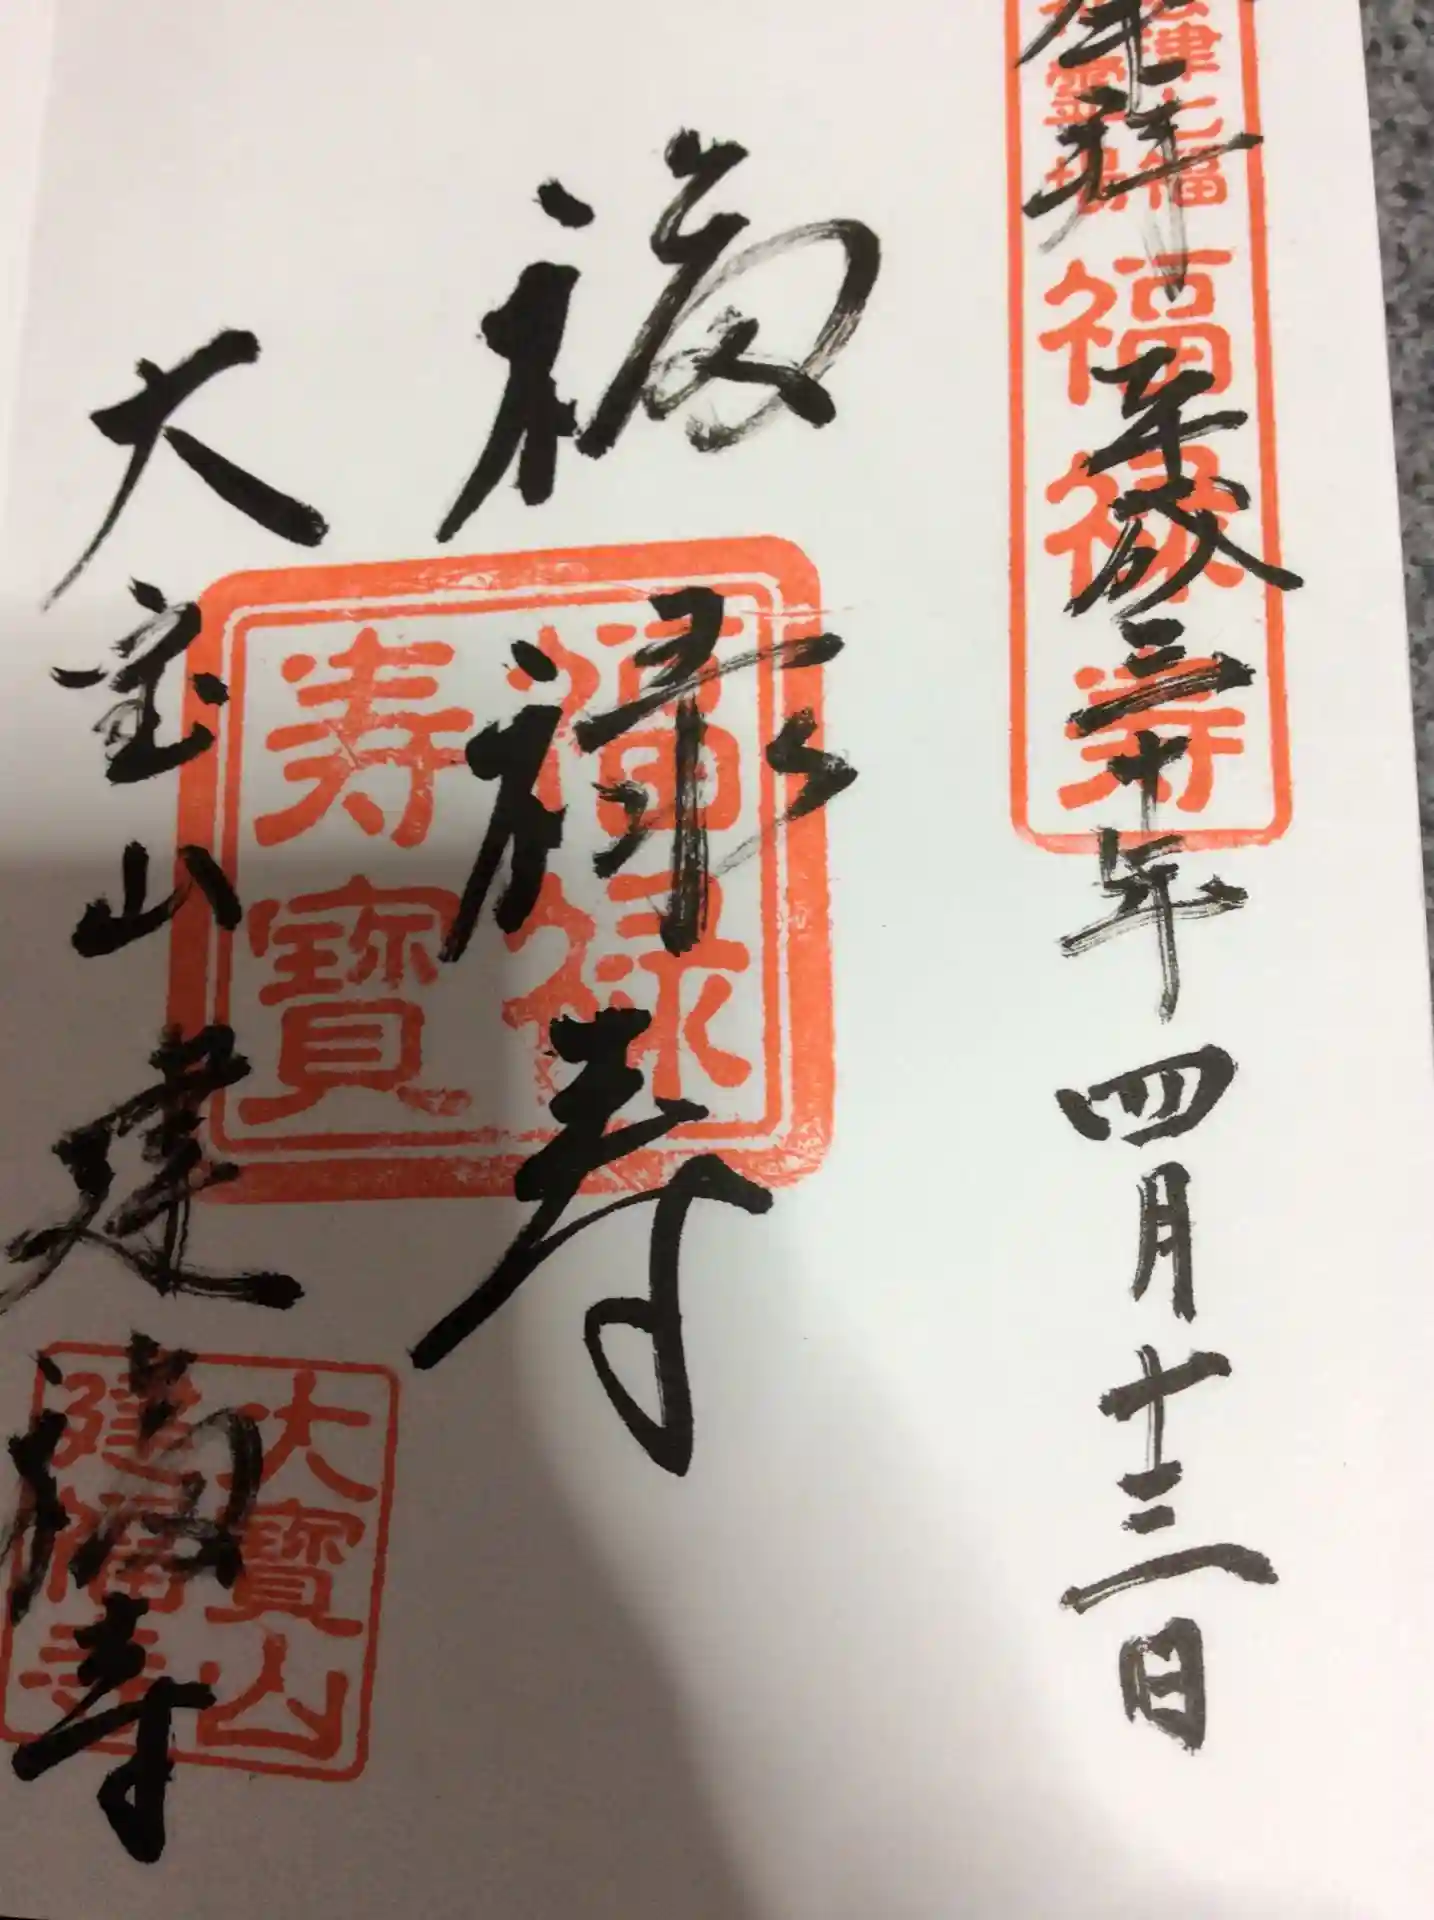 奉拝 平成三十年四月十三日
津七福
神霊場
福禄寿
福禄寿
福禄
寿寶
大宝山建福寺
大寶山
建福寺